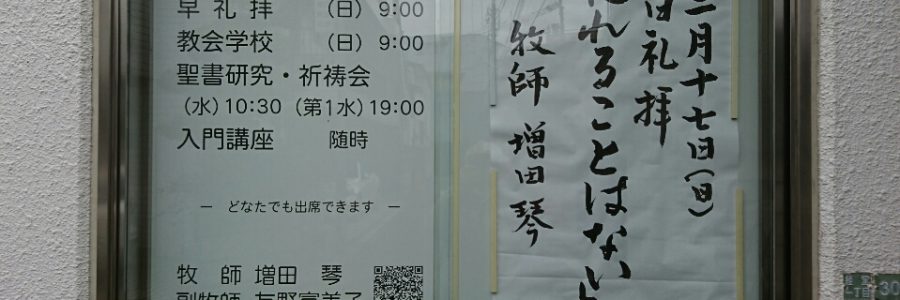 早礼拝 (日) 9:00
教会学校 (日) 9:00
聖書研究・祈祷会
(水)10:30 (第1水)19:00
入門講座 随時
— どなたでも出席できます —
牧師 増田 琴
副牧師 友野富美子
三月十七日(日)
日礼拝
れることはない
牧師 増田琴
30